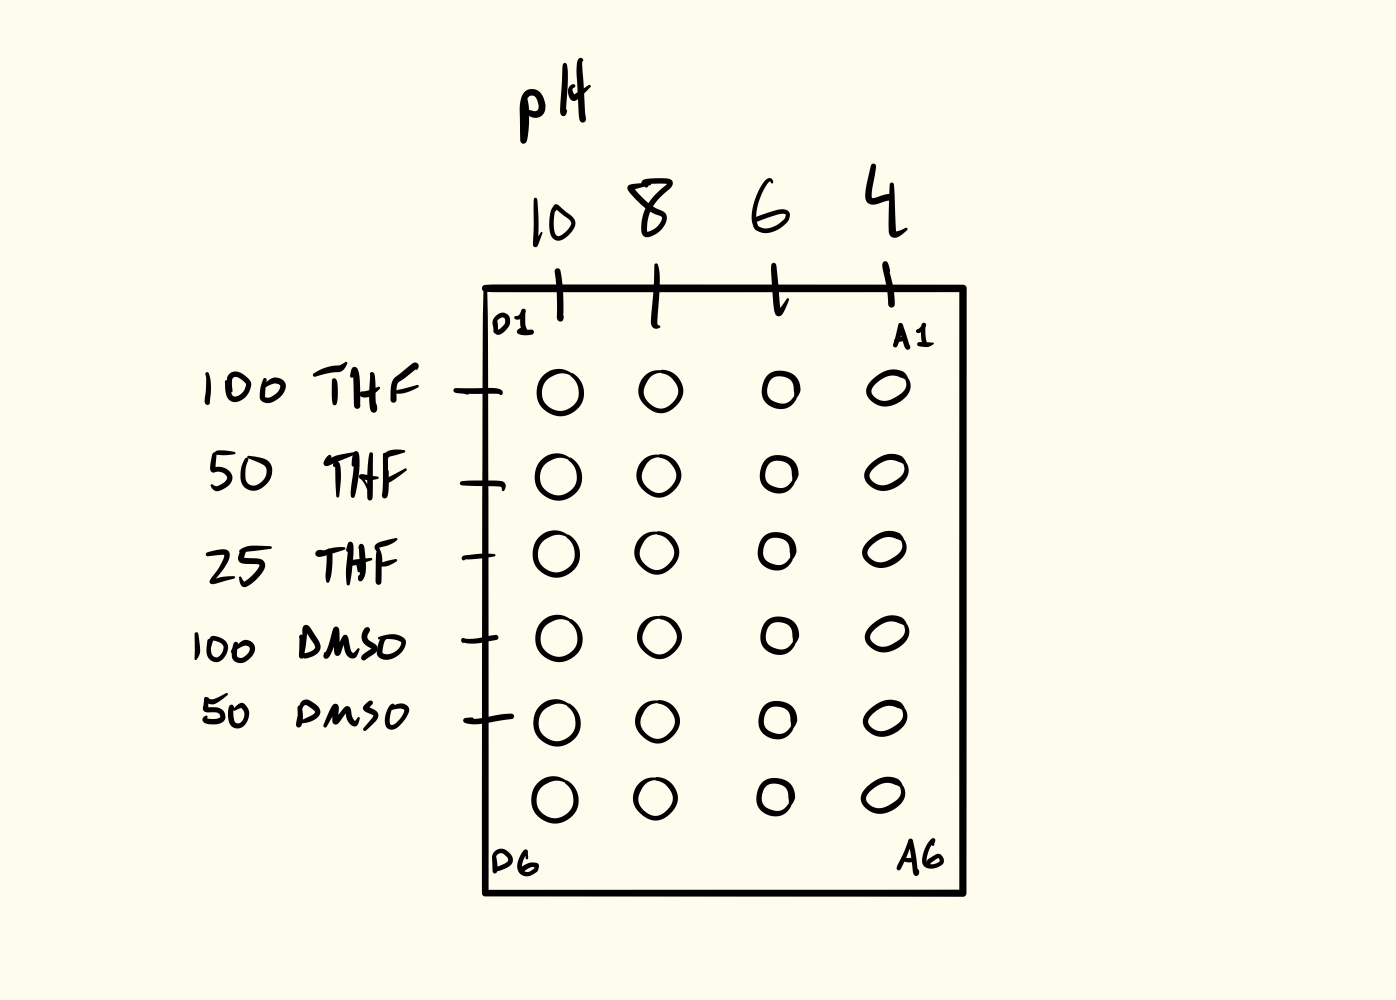 pH
10 8 6 4
D1 A1
100 THF
50 THF
25 THF
100 DMSO
50 DMSO
D6 A6